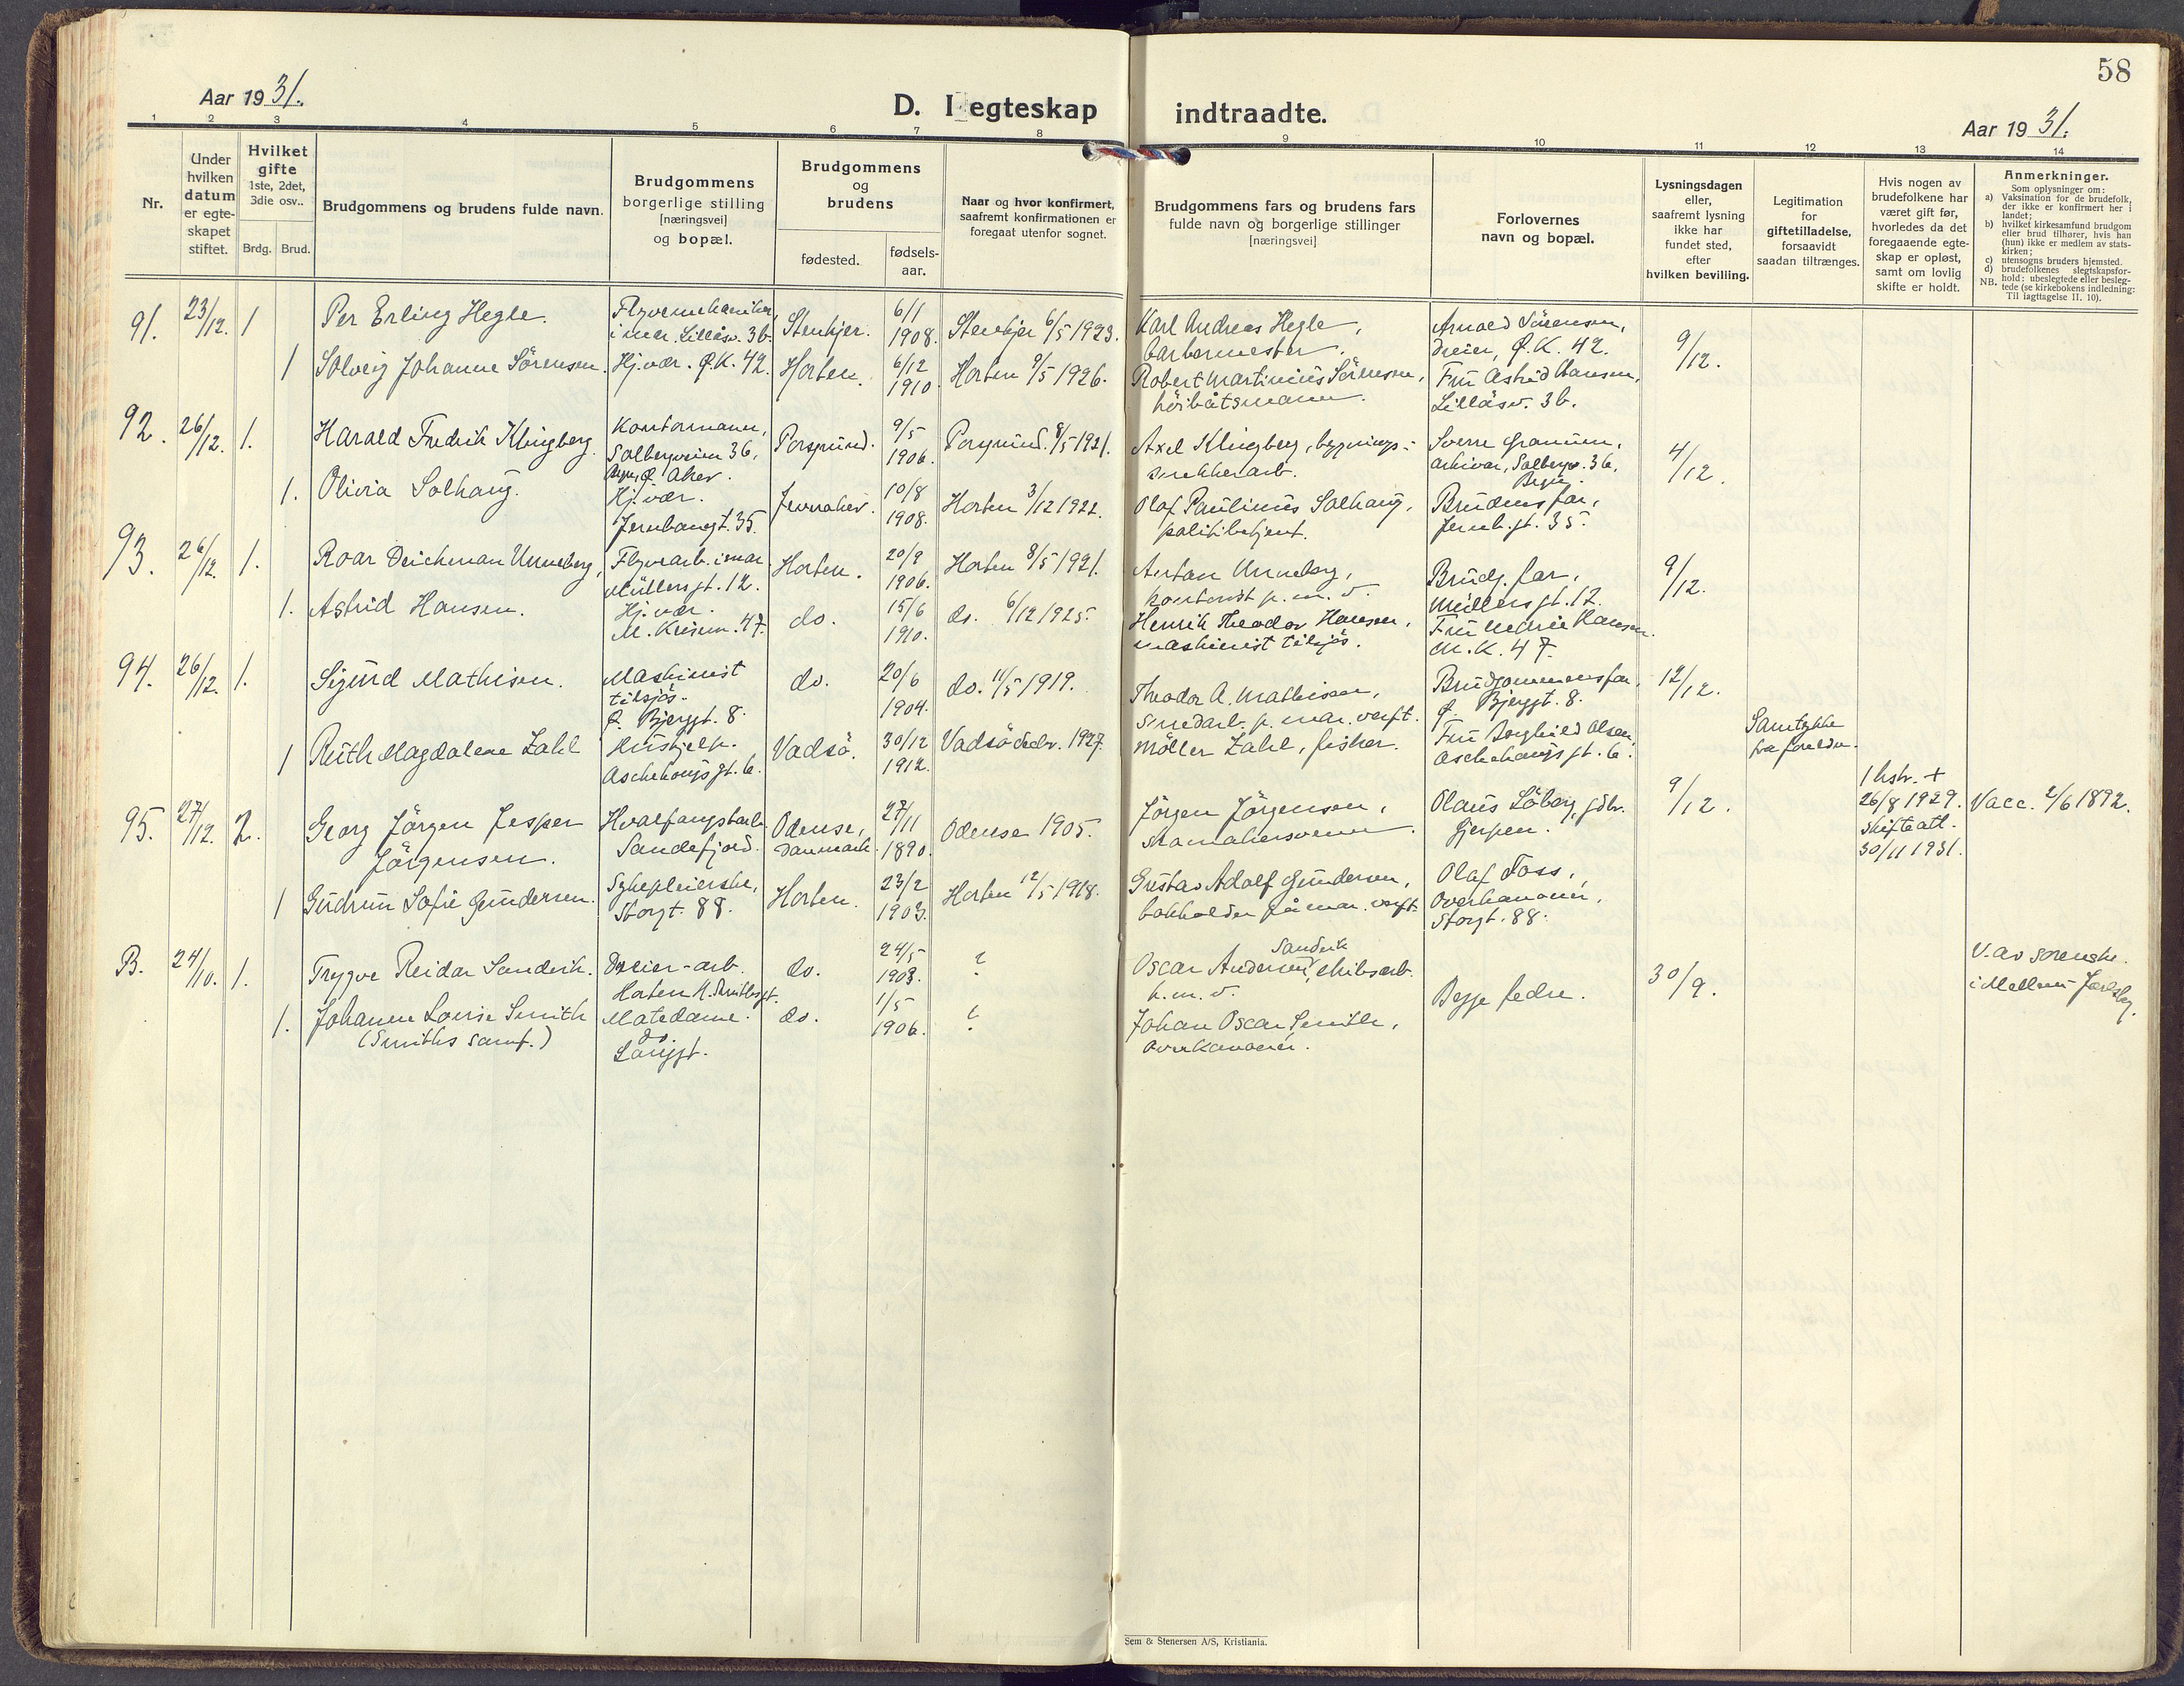 58
Aar 1931.
D. I egteskap indtraadte.
Aar 1931.
1 2 3 4 5 6 7 8 9 10 11 12 13 14
Nr.
Under
hvilken
datum
er egte-
skapet
stiftet.
Hvilket
gifte
1ste, 2det,
3die osv..
Brdg. Brud.
Brudgommens og brudens fulde navn.
Brudgommens
borgerlige stilling
[næringsvei]
og bopæl.
Brudgommens
og
brudens
fødested.
fødsels-
aar.
Naar og hvor konfirmert,
saafremt konfirmationen er
foregaat utenfor sognet.
Brudgommens fars og brudens fars
fulde navn og borgerlige stillinger
[næringsvei]
Forlovernes
navn og bopæl.
Lysningsdagen
eller,
saafremt lysning
ikke har
fundet sted,
efter
hvilken bevilling.
Legitimation
for
giftetilladelse,
forsaavidt
saadan tiltrænges.
Hvis nogen av
brudefolkene har
været gift før,
hvorledes da det
foregaaende egte-
skap er opløst,
samt om lovlig
skifte er holdt.
Anmerkninger.
Som oplysninger om:
a) Vaksination for de brudefolk,
der ikke er konfirmert her i
landet;
b) hvilket kirkesamfund brudgom
eller brud tilhører, hvis han
(hun) ikke er medlem av stats-
kirken;
c) utensogns bruders hjemsted.
d) brudefolkenes slegtskapsfor-
hold: ubeslegtede eller besleg-
NB. tede (se kirkebokens indledning:
Til iagttagelse II. 10).
91. 23/12. 1
Per Erling Hegle.
Flyvemekaniker
i mar. Lilläsv. 3b.
Stenkjer.
6/1
1908.
Stenkjer 6/5 1923.
Karl Andreas Hegle,
barbermester.
Arnold Sörensen,
dreier, Q.K. 42.
9/12.
1
Solveig Johanne Sörensen.
Hj.vær. Q.K. 42.
Horten.
6/12
1910
Horten 9/5 1926.
Robert Martinius Sörensen,
höibåtsmann.
Fru Astrid Hansen,
Lilläsv. 3b.
92. 26/12. 1.
Harald Fredrik Klingberg.
Kontormann,
Solbergveien 36,
Akers.
Porsgrund.
9/5
1906.
Porsgrund. 8/5 1921.
Axel Klingberg, bygnings-
snekkerarb.
Sverre Gramm,
arkivar, Solbergv. 36,
4/12.
1.
Olivia Solhaug.
Hj.vær.
Jernbangt. 35.
Jevnaker.
10/8
1908.
Horten 3/12 1922.
Olaf Paulinius Solhaug,
politibetjent.
Brudens far,
Jernb.gt. 35.
93. 26/12. 1.
Roar Deichman Unneberg,
Flyvearb. i mar.
Müllersgt. 12.
Horten.
20/9
1906.
Horten 8/5 1921.
Anton Unneberg,
kontorist p. m. v.
Brudg. far,
Müllersgt. 12.
9/12.
1.
Astrid Hansen.
Hj.vær.
M. Krism. 47.
do.
15/6
1910.
do. 6/12 1925.
Henrik Theodor Hansen,
maskinist tilsjös.
Fru Marie Hansen.
M.K. 47.
94. 26/12. 1.
Sigurd Mathisen.
Maskinist
tilsjös.
Q. Bjerggt. 8.
do.
20/6
1904.
do. 11/5 1919.
Theodor A. Mathisen,
smedarb. p. mar. verft.
Brudgommens far,
Q. Bjerggt. 8.
12/12.
1
Ruth Magdalene Zahl
Hushjelp.
Aschehougsgt. 6.
Vadsö.
30/12
1912.
Vadsö 1927.
Möller Zahl, fisker.
Fru Borghild Olsen,
Aschehougsgt. 6.
Samtykke
fra foreldre.
95. 27/12. 2.
Georg Jörgen Jesper
Jörgensen.
Hvalfangstarb.
Sandefjord.
Odense,
Danmark.
27/11
1890.
Odense 1905.
Jörgen Jörgensen,
skomakersvenn.
Olaus Löberg, gdbr.
Gjerpen.
9/12.
1 hstr. +
26/8 1929.
skifteatt.
30/11 1931.
Vacc. 2/6 1892.
1
Gudrun Sofie Gundersen.
Sykepleierske,
Storgt. 88.
Horten.
23/2
1903.
Horten 12/5 1918.
Gustav Adolf Gundersen,
bokholder på mar. verft.
Olaf Foss,
Overkanoner,
Storgt. 88.
B. 24/10. 1.
Trygve Reidar Sandvik.
Dreier-arb.
Horten
do.
24/5
1903.
?
Sandvik
Oscar Andersen, skibsarb.
p. m. v.
Begge fedre.
30/9.
V. av sorenskr.
i Mellem Jarlsberg.
1.
Johanne Lovise Smith
(Smiths samf.)
Matedame.
do
Langgt.
do.
1/5
1906.
?
Johan Oscar Smith,
Overkanoner.
Sem & Stenersen A/S, Kristiania.